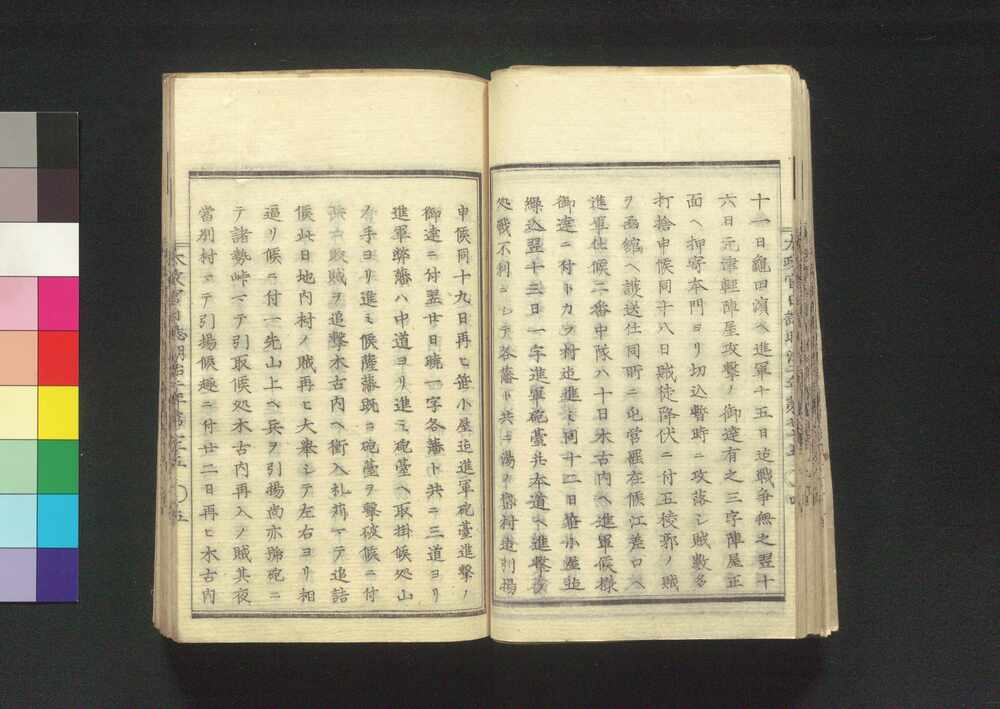 十一日龜田濵ヘ進軍十五日迠戦争無之翌十
六日元津輕陣屋攻撃ノ御達有之三字陣屋正
面ヘ押寄本門ヨリ切込暫時ニ攻落シ賊数多
打捨申候同十八日賊徒降伏ニ付五稜郭ノ賊
ヲ函館ヘ護送仕同所ニ屯営罷在候江差口ヘ
進軍仕候二番中隊ハ十日木古内ヘ進軍候様
御達ニ付トカヲ村迠進ミ同十二日笹小屋迠
繰込翌十三日一字進軍砲臺共本道ヘ進撃
処戦不利ニシテ各藩ト共ニ湯ノ岱村迠引揚
申候同十九日再ヒ笹小屋迠進軍砲臺進撃ノ
御達ニ付翌廿日暁一字各藩ト共ニ三道ヨリ
進軍弊藩ハ中道ヨリ進ミ砲臺ヘ取掛候処山
手ヨリ進ミ候薩藩既ニ砲臺ヲ撃破候ニ付
敗賊ヲ追撃木古内ヘ衝入札苅マテ追詰
候此日地内村ノ賊再ヒ大舉シテ左右ヨリ相
逼リ候ニ付一先山上ヘ兵ヲ引揚尚亦發砲ニ
テ諸勢峠マテ引取候処木古内再入ノ賊其夜
當別村マテ引揚候趣ニ付廿二日再ヒ木古内
太政官日誌明治二年